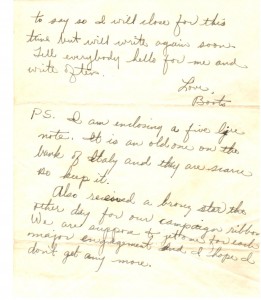 to say so I will close for this
time but will write again soon.
Tell everybody hello for me and
write often.
Love,
Boots
P.S. I am enclosing a five lire
note. It is an old one on the
bank of Italy and they are scarce
so keep it.
Also received a bronze star the
other day for our campaign ribbon
We are suppose to get one for each
major engagement and I hope I
don't get any more.